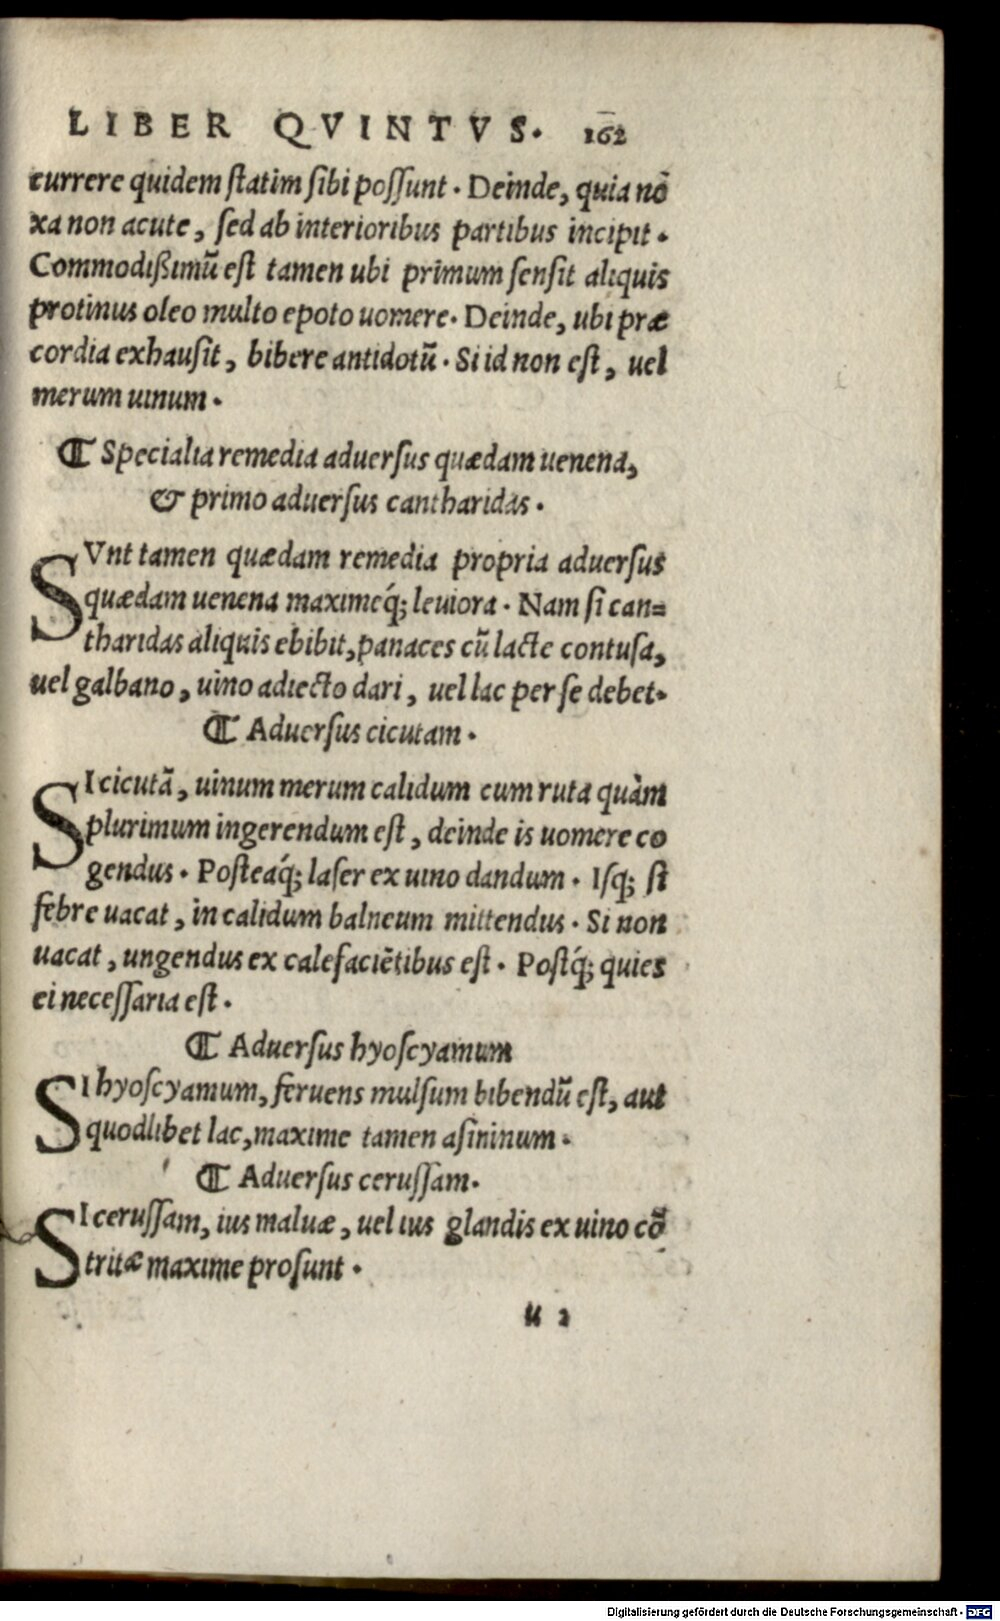 LIBER QVINTVS. 162
currere quidem ſtatim ſibi poſſunt. Deinde, quia nõ
xa non acute, ſed ab interioribus partibus incipit.
Commodißimũ eſt tamen ubi primum ſenſit aliquis
protinus oleo multo epoto uomere. Deinde, ubi præ
cordia exhauſit, bibere antidotũ. Si id non eſt, uel
merum uinum.
¶ Specialia remedia aduerſus quædam uenena,
& primo aduerſus cantharidas.
SVnt tamen quædam remedia propria aduerſus
quædam uenena maximeq́; leuiora. Nam ſi can=
tharidas aliquis ebibit, panaces cũ lacte contuſa,
uel galbano, uino adiecto dari, uel lac per ſe debet.
¶ Aduerſus cicutam.
SI cicutã, uinum merum calidum cum ruta quàm
plurimum ingerendum eſt, deinde is uomere co
gendus. Poſteaq́; laſer ex uino dandum. Iſq; ſi
febre uacat, in calidum balneum mittendus. Si non
uacat, ungendus ex calefaciẽtibus eſt. Poſtq́; quies
ei neceſſaria eſt.
¶ Aduerſus hyoſcyamum
SI hyoſcyamum, feruens mulſum bibendũ eſt, aut
quodlibet lac, maxime tamen aſininum.
¶ Aduerſus ceruſſam.
SI ceruſſam, ius maluæ, uel ius glandis ex uino cõ
tritæ maxime proſunt.
u 2
Digitalisierung gefördert durch die Deutsche Forschungsgemeinschaft - DFG